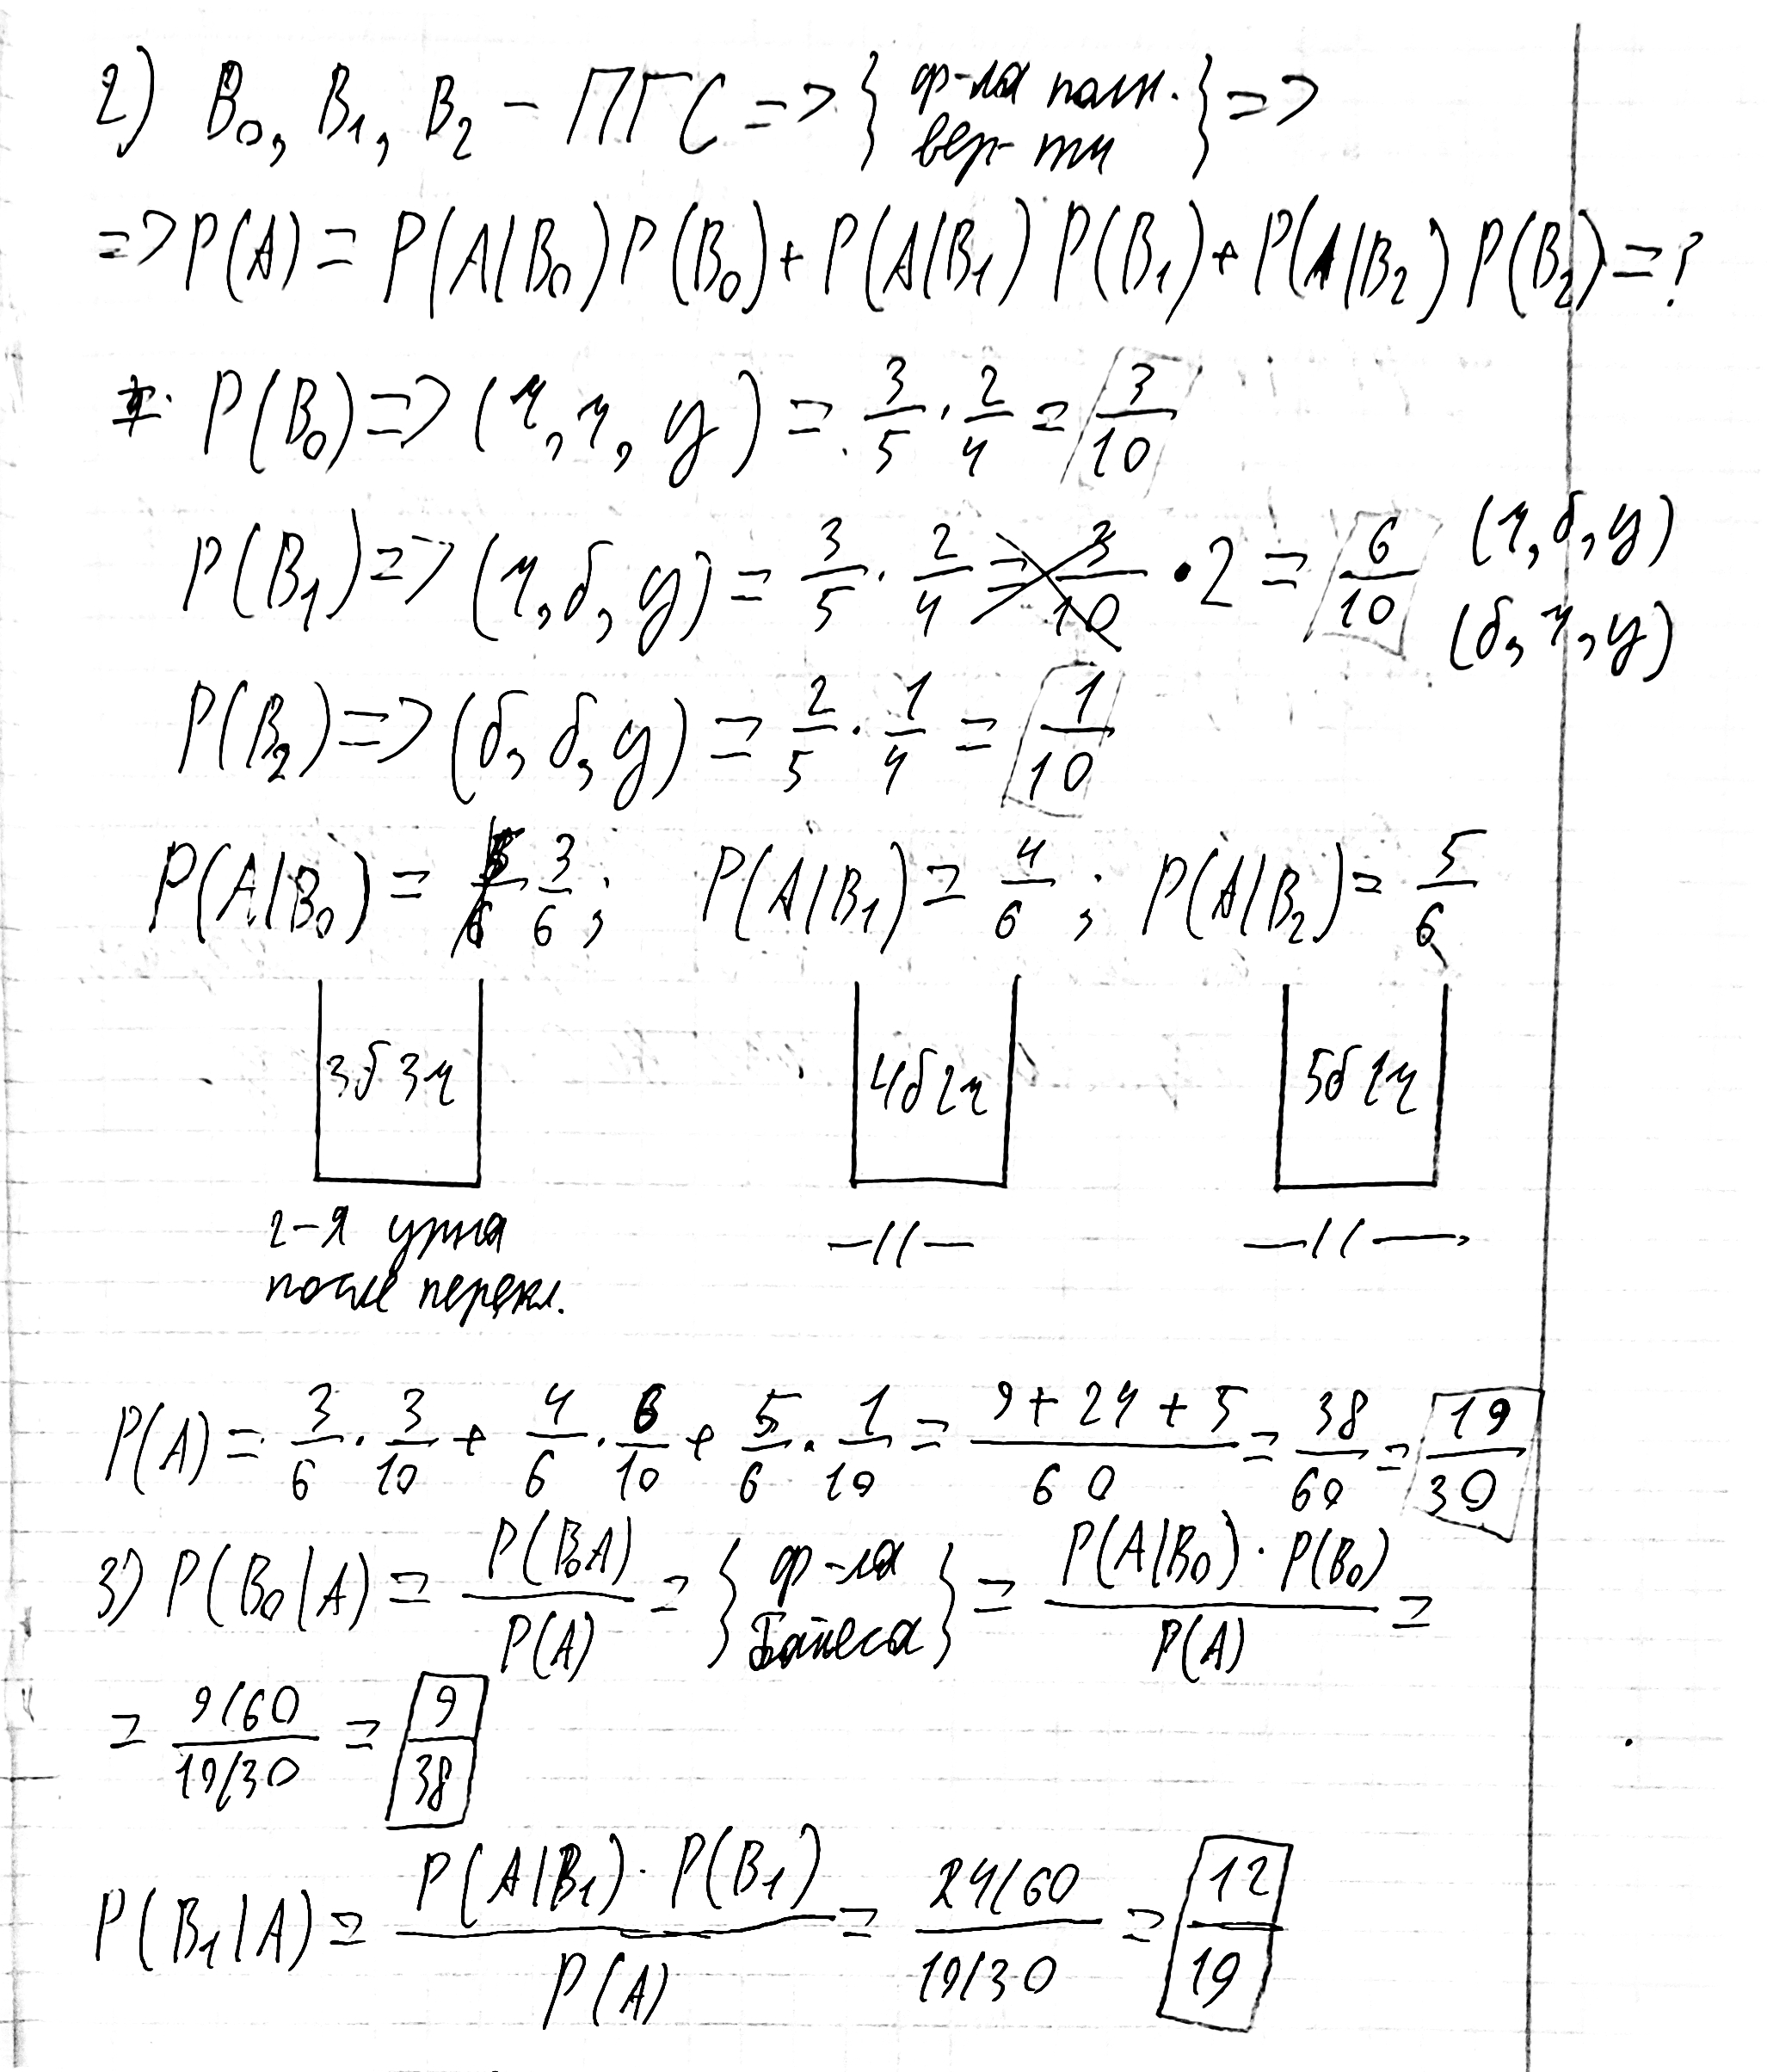 2) B₀, B₁, B₂ – ПГС => { ф-ла полн. вер-ти } =>
=> P(A) = P(A|B₀)P(B₀) + P(A|B₁)P(B₁) + P(A|B₂)P(B₂) = ?
P(B₀) => (ч, ч, у) = 3/5 · 2/4 = 3/10
P(B₁) => (ч, б, у) = 3/5 · 2/4 · 2 = 6/10 (ч, б, у) (б, ч, у)
P(B₂) => (б, б, у) = 2/5 · 1/4 = 1/10
P(A|B₀) = 3/6; P(A|B₁) = 4/6; P(A|B₂) = 5/6
3б 3ч 4б 2ч 5б 1ч
2-я урна –//– –//–
после перекл.
P(A) = 3/6 · 3/10 + 4/6 · 6/10 + 5/6 · 1/10 = (9 + 24 + 5)/60 = 38/60 = 19/30
3) P(B₀|A) = P(B₀A)/P(A) = { ф-ла Байеса } = P(A|B₀) · P(B₀)/P(A) =
= (9/60)/(19/30) = 9/38
P(B₁|A) = P(A|B₁) · P(B₁)/P(A) = (24/60)/(19/30) = 12/19